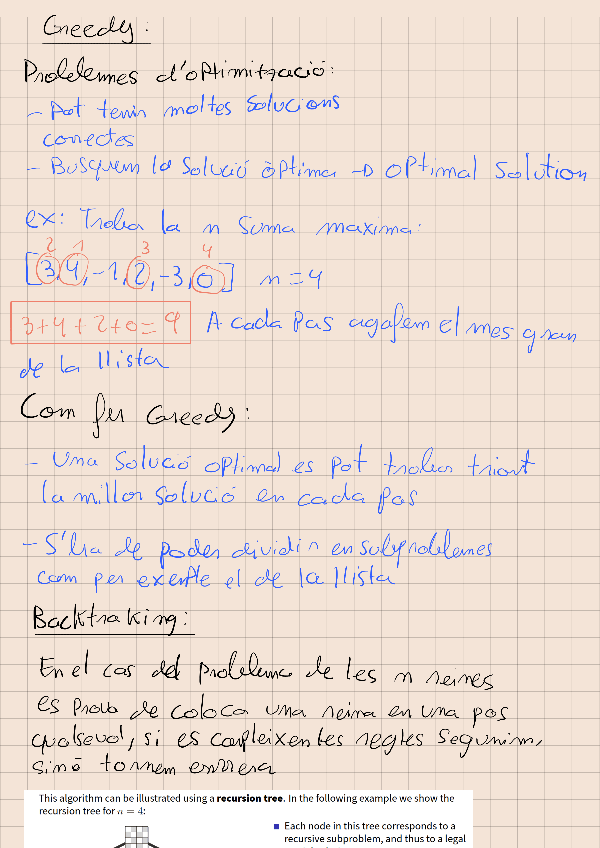 Greedy:
Problemes d'optimització:
- Pot tenir moltes solucions
correctes
- Busquem la solució òptima → optimal solution
ex: Troba la n suma maxima:
2 1 3 4
[3,4,-1,2,-3,0] n=4
3+4+2+0=9 A cada pas agafem el mes gran
de la llista
Com fer Greedy:
- Una solució optimal es pot trobar triant
la millor solució en cada pas
- S'ha de poder dividir en subproblemes
com per exemple el de la llista
Backtraking:
En el cas del problema de les n reines
es prova de coloca una reina en una pos
qualsevol, si es compleixen les regles seguirim,
sinó tornem enrrera
This algorithm can be illustrated using a recursion tree. In the following example we show the
recursion tree for n = 4:
Each node in this tree corresponds to a
recursive subproblem, and thus to a legal